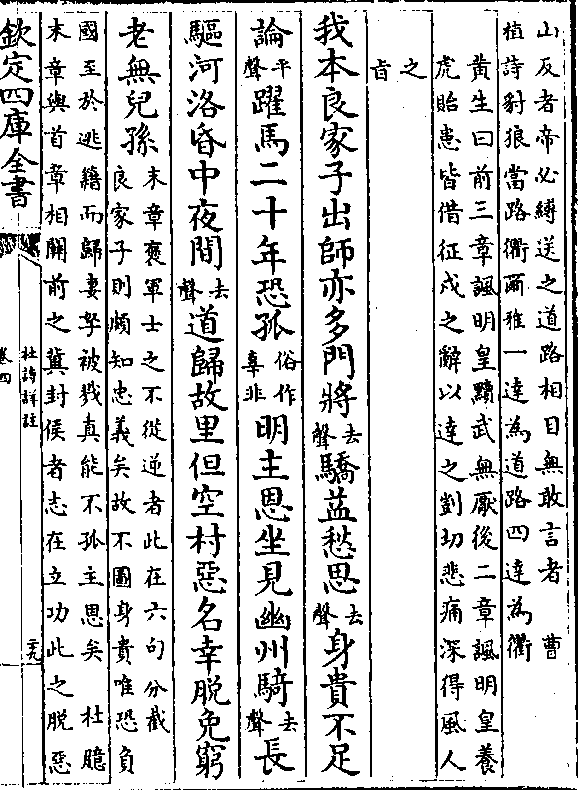 山反者帝必縛送之道路相目無敢言者　曹
植詩豺狼當路衢爾雅一達為道路四達為衢
黄生曰前三章諷明皇黷武無厭後二章諷明皇養
虎貽患皆借征戍之辭以達之剴切悲痛深得風人
之
旨
我本良家子出師亦多門將去聲驕益愁思去聲身貴不足
論平聲躍馬二十年恐孤俗作辜非明主恩坐見幽州騎去聲長
驅河洛昏中夜間去聲道歸故里但空村惡名幸脱免窮
老無兒孫末章褒軍士之不從逆者此在六句分截
良家子則頗知忠義矣故不圖身貴唯恐負
國至於逃籍而歸妻孥被戮真能不孤主恩矣　杜臆
末章與首章相關前之冀封侯者志在立功此之脱惡
欽定四庫全書
杜詩詳註
卷四
二十九